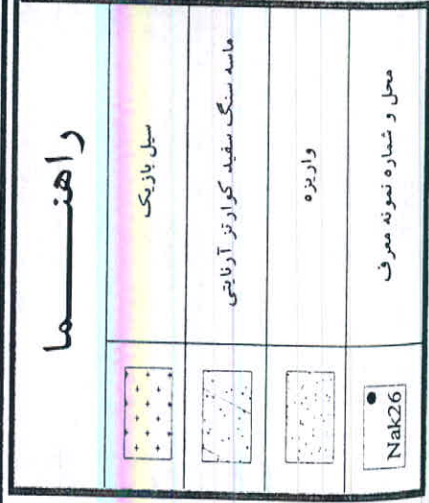 راهنما
سیل بازیک
ماسه سنگ سفید کوارتز آرنایتی
واریزه
محل و شماره نمونه معرف
Nak26